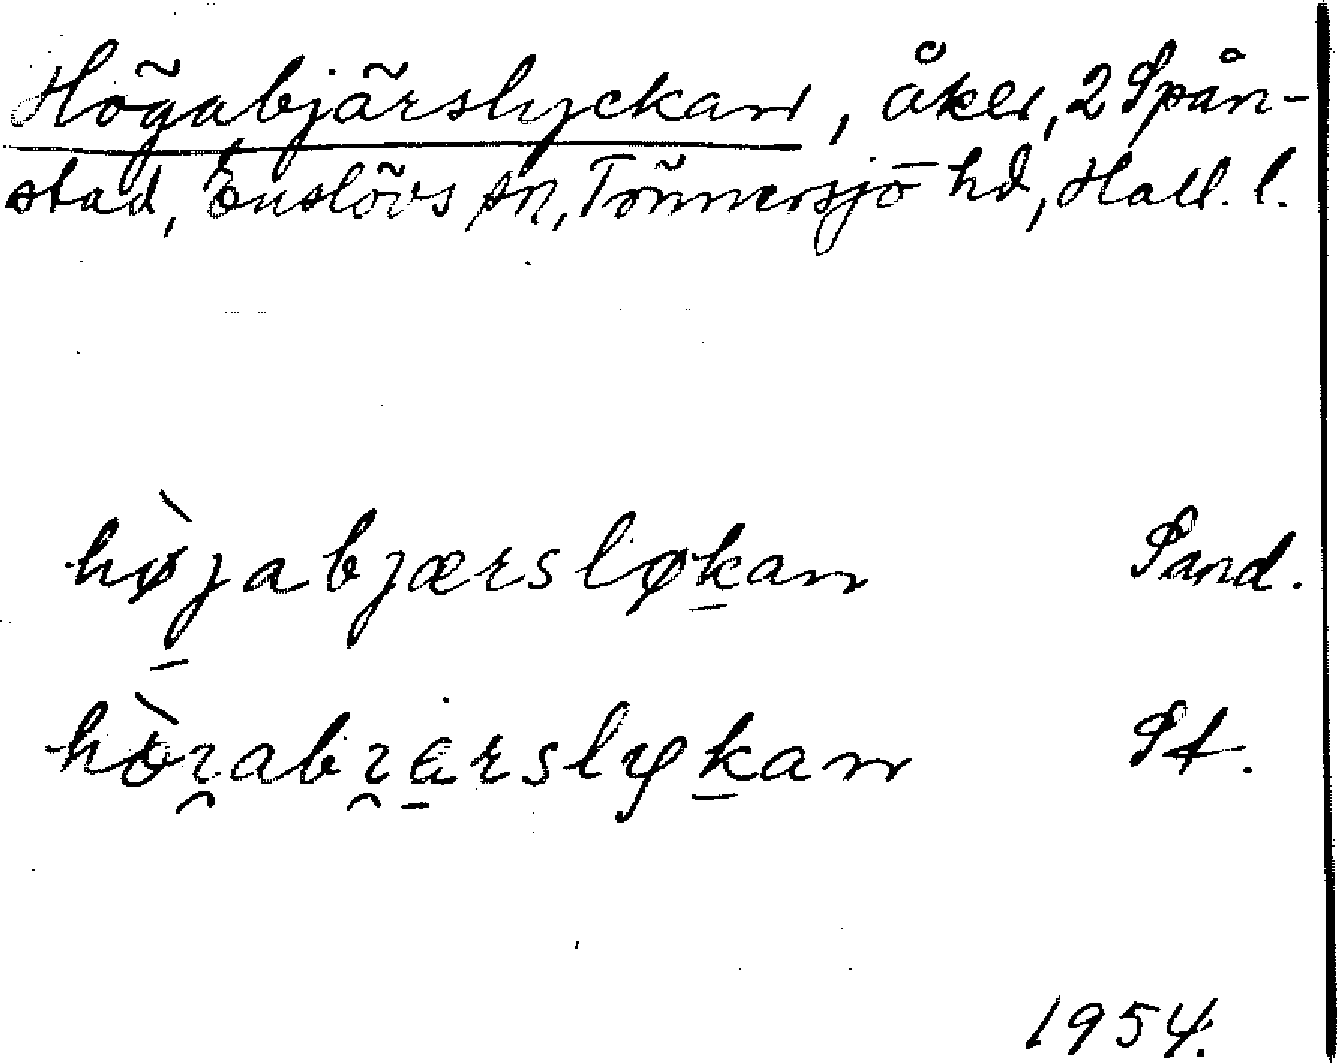 Högabjärslyckan, åker, 2 Spån-
stad, Enslövs sn, Tönnersjö hd, Hall. l.
hø̀jabjærsløkan Sand.
hòʅabʅarslykan St.
1954.